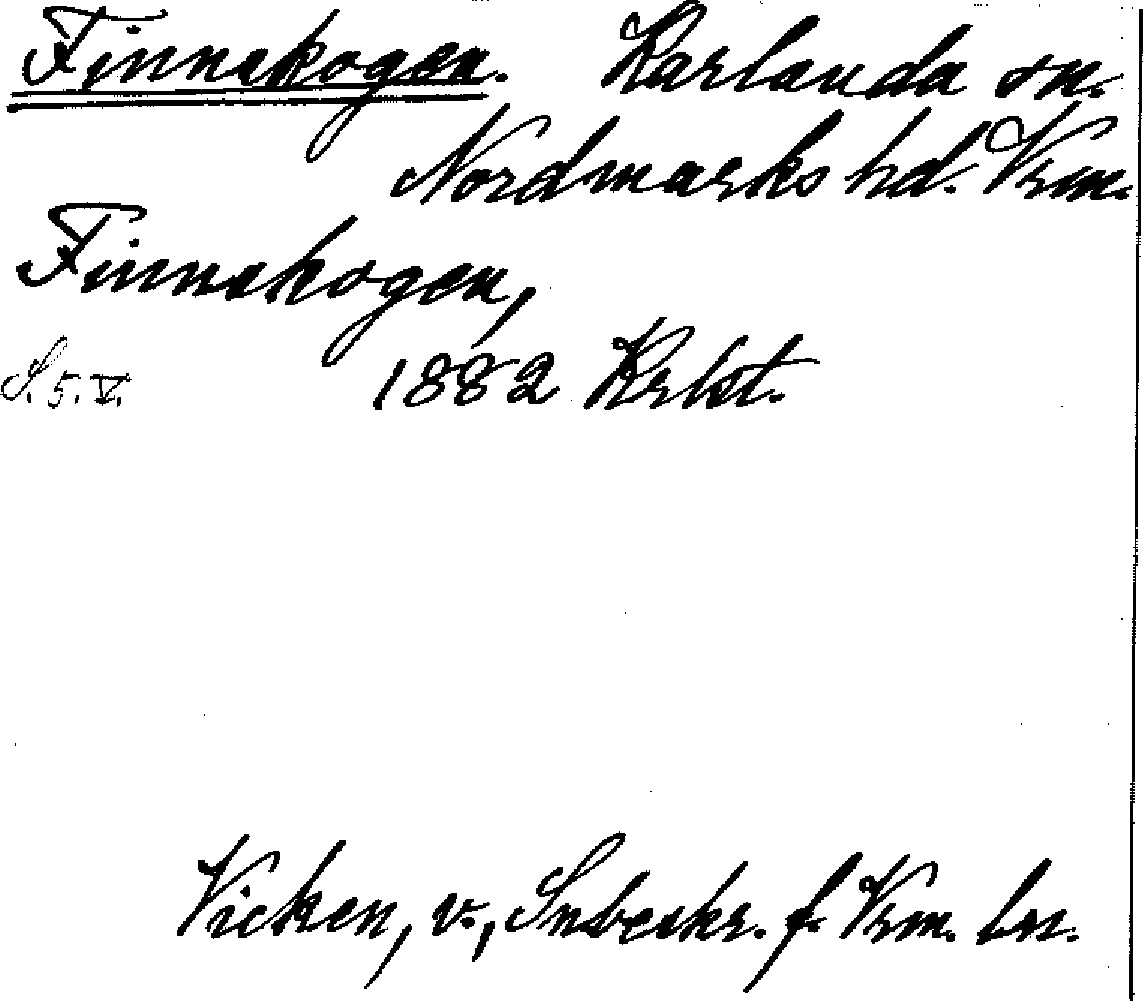 Finnskogen. Karlanda sn.
Nordmarks hd. Vrm.
Finnskogen,
S. 5. V. 1882 Krlst.
Vicken, v., Snbeskr. f. Vrm. ln.